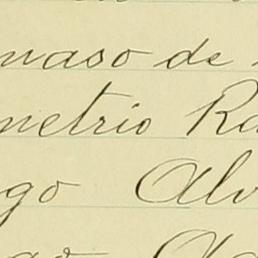 maso de
metrio Ra
go Alv